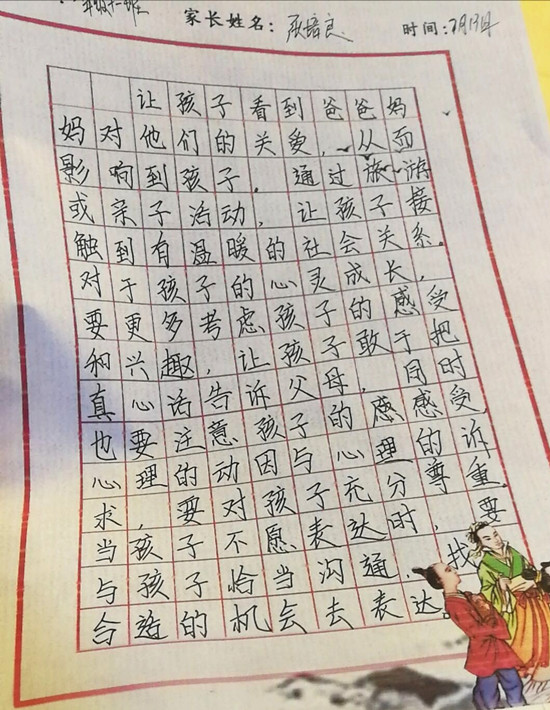 家长姓名: 时间: 7月19日
让孩子看到爸爸妈
妈对他们的关爱,从而
影响到孩子。通过旅游
或亲子活动,让孩子接
触到有温暖的社会关系。
对于孩子的心灵成长,
要更多考虑孩子的感受
和兴趣,让孩子敢于把
真心话告诉父母,同时
也要注意孩子的感感受,
心理的动因与心理的诉
求,要对孩子充分尊重,
当孩子不愿表达时,要
与孩子恰当沟通,找
合适的机会去表达。